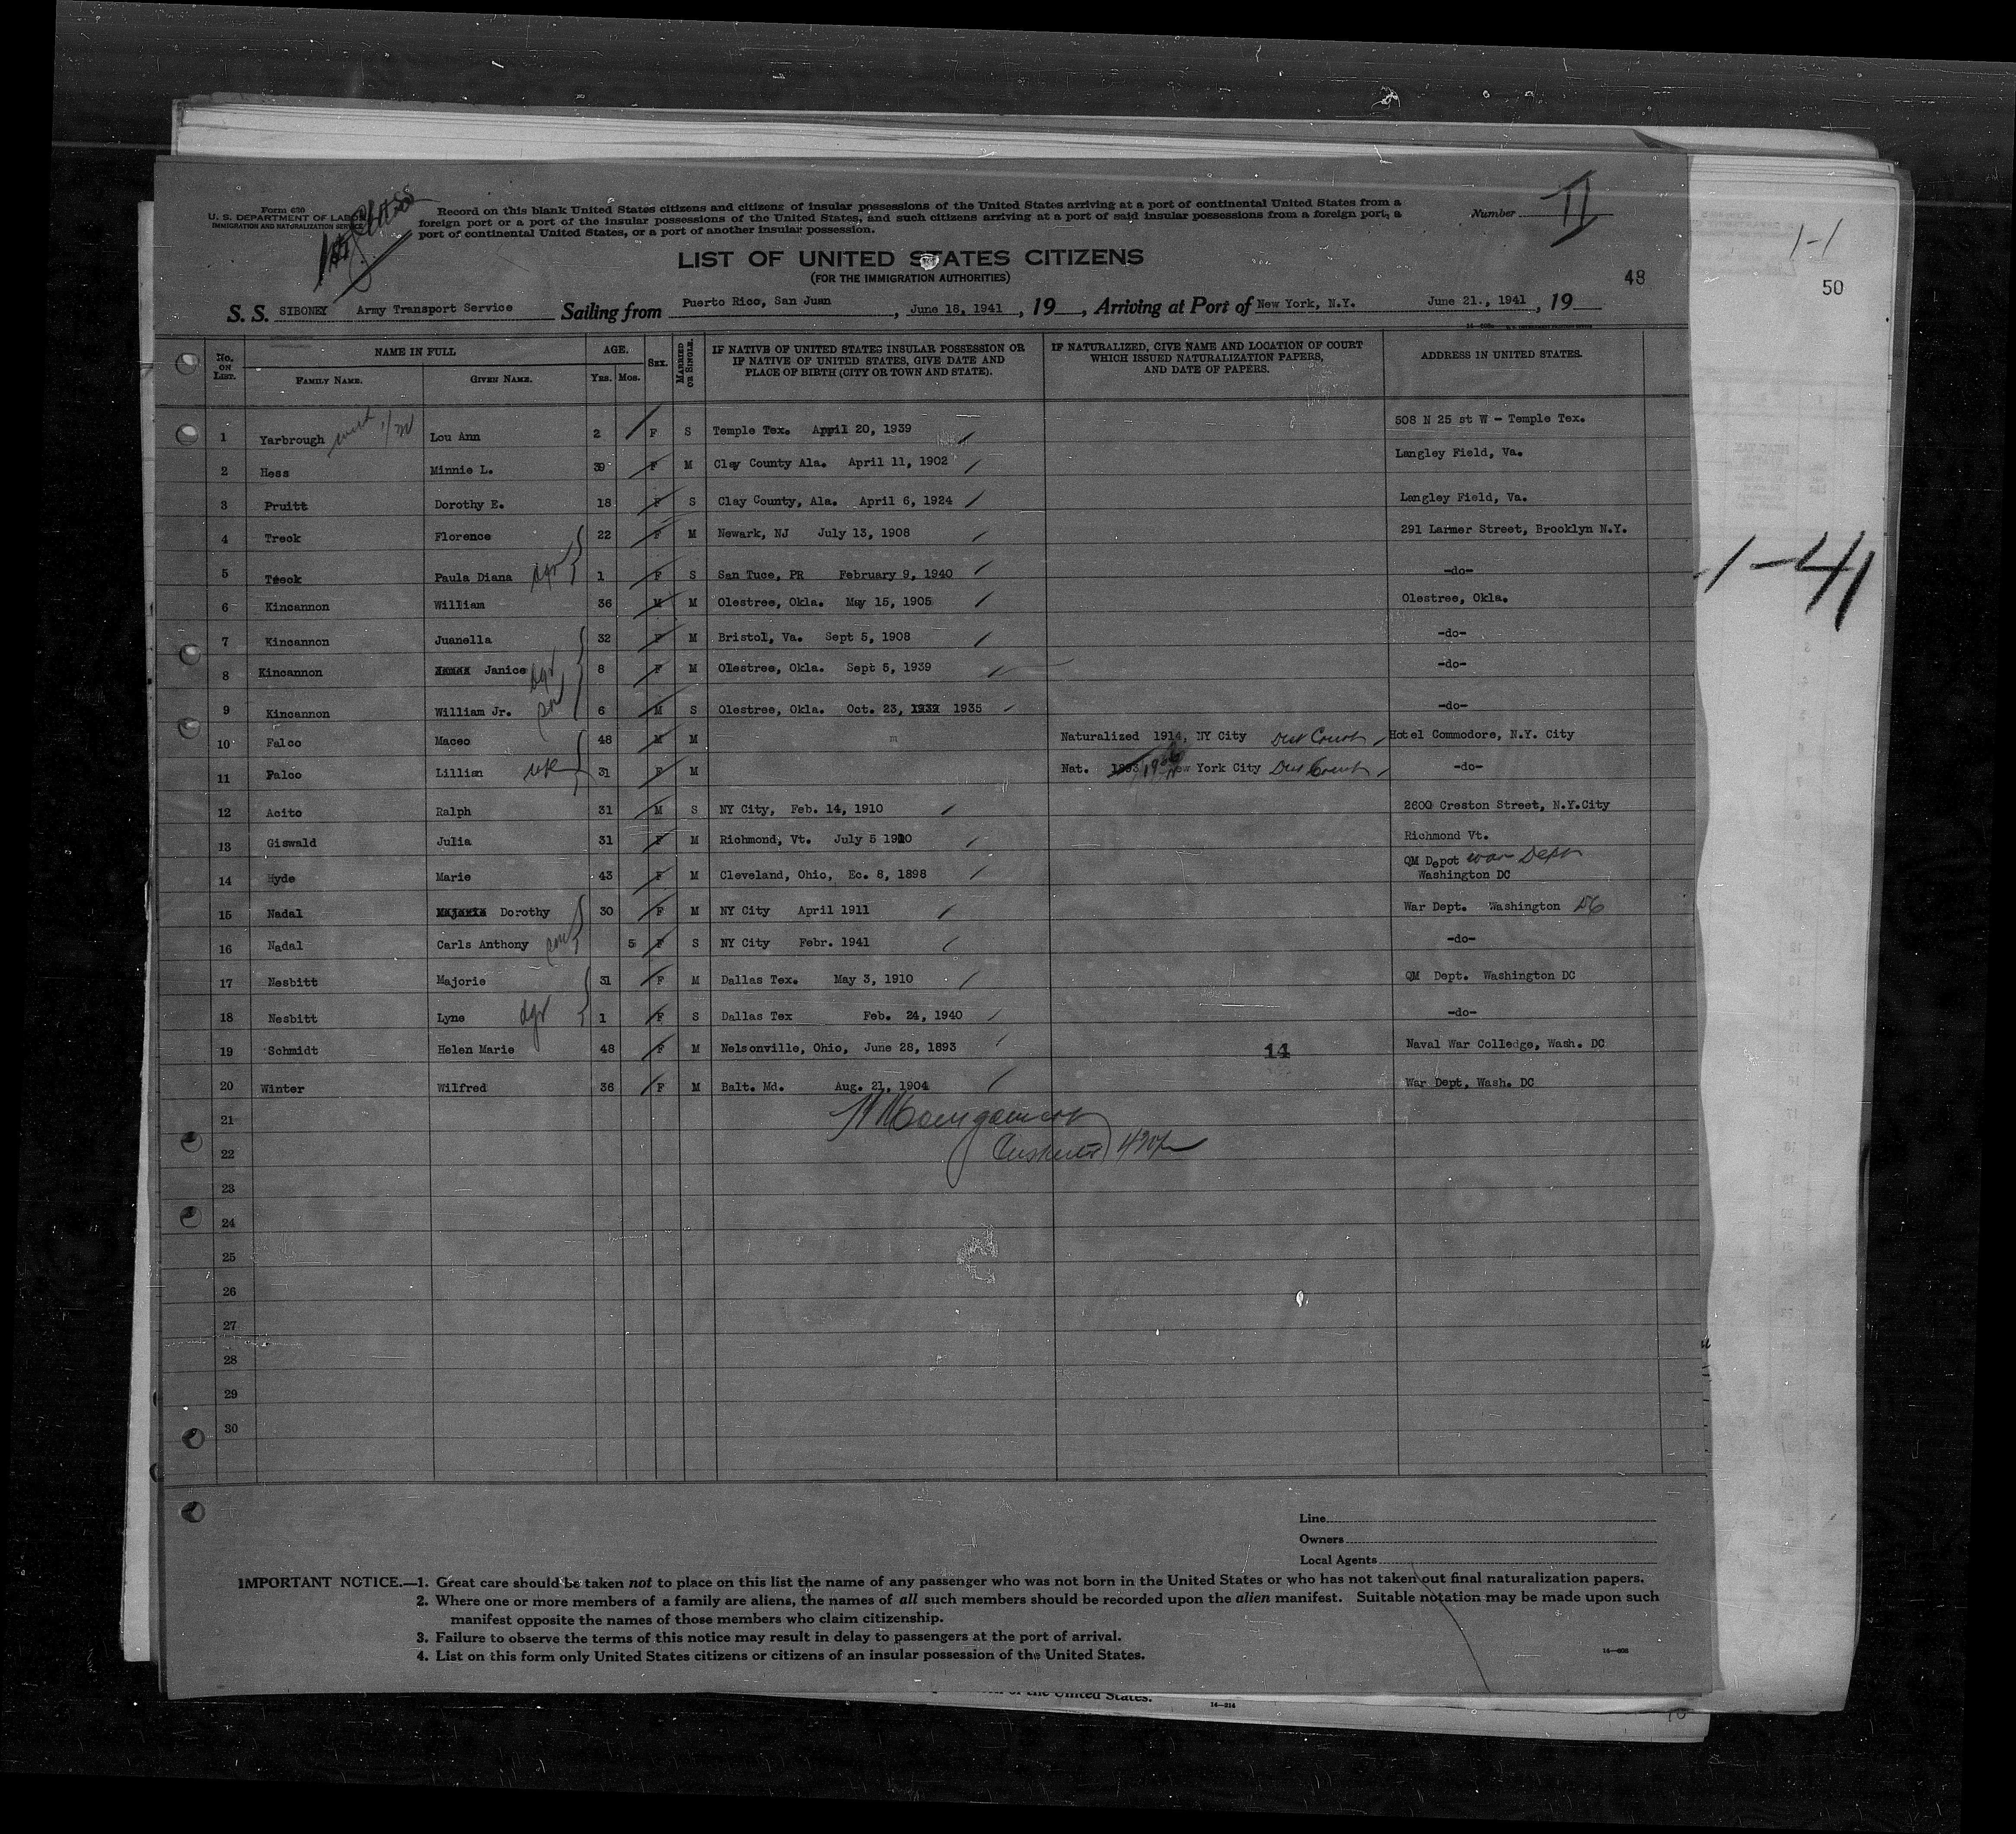 Form 630
U. S. DEPARTMENT OF LABOR
IMMIGRATION AND NATURALIZATION SERVICE
1st Class
Record on this blank United States citizens and citizens of insular possessions of the United States arriving at a port of continental United States from a
foreign port or a port of the insular possessions of the United States, and such citizens arriving at a port of said insular possessions from a foreign port, a
port of continental United States, or a port of another insular possession.
Number II
LIST OF UNITED STATES CITIZENS
(FOR THE IMMIGRATION AUTHORITIES)
48
1-1
50
S. S. SIBONEY Army Transport Service Sailing from Puerto Rico, San Juan, June 18, 1941, 19 , Arriving at Port of New York, N.Y. June 21., 1941, 19
No. ON LIST. NAME IN FULL AGE. SEX. MARRIED OR SINGLE. IF NATIVE OF UNITED STATES INSULAR POSSESSION OR IF NATIVE OF UNITED STATES, GIVE DATE AND PLACE OF BIRTH (CITY OR TOWN AND STATE). IF NATURALIZED, GIVE NAME AND LOCATION OF COURT WHICH ISSUED NATURALIZATION PAPERS, AND DATE OF PAPERS. ADDRESS IN UNITED STATES.
FAMILY NAME. GIVEN NAME. YRS. MOS.
1 Yarbrough Lou Ann 2 F S Temple Tex. April 20, 1939 508 N 25 st W - Temple Tex.
2 Hess Minnie L. 39 F M Clay County Ala. April 11, 1902 Langley Field, Va.
3 Pruitt Dorothy E. 18 F S Clay County, Ala. April 6, 1924 Langley Field, Va.
4 Treck Florence 22 F M Newark, NJ July 13, 1908 291 Larmer Street, Brooklyn N.Y.
5 Treck Paula Diana dgr 1 F S San Tuce, PR February 9, 1940 -do-
6 Kincannon William 36 M M Olestree, Okla. May 15, 1905 Olestree, Okla.
7 Kincannon Juanella 32 F M Bristol, Va. Sept 5, 1908 -do-
8 Kincannon Janice dgr 8 F M Olestree, Okla. Sept 5, 1939 -do-
9 Kincannon William Jr. son 6 M S Olestree, Okla. Oct. 23, 1939 1935 -do-
10 Falco Maceo 48 M M m Naturalized 1914, NY City Dist Court Hotel Commodore, N.Y. City
11 Falco Lillian wife 31 F M Nat. 1893 New York City Dist Court -do-
12 Acito Ralph 31 M S NY City, Feb. 14, 1910 2600 Creston Street, N.Y.City
13 Giswald Julia 31 F M Richmond, Vt. July 5 1910 Richmond Vt.
14 Hyde Marie 43 F M Cleveland, Ohio, Ec. 8, 1898 QM Depot War Dept Washington DC
15 Nadal Majorie Dorothy 30 F M NY City April 1911 War Dept. Washington DC
16 Nadal Carls Anthony son 5 F S NY City Febr. 1941 -do-
17 Nesbitt Majorie 31 F M Dallas Tex. May 3, 1910 QM Dept. Washington DC
18 Nesbitt Lyne dgr 1 F S Dallas Tex Feb. 24, 1940 -do-
19 Schmidt Helen Marie 48 F M Nelsonville, Ohio, June 28, 1893 14 Naval War Colledge, Wash. DC
20 Winter Wilfred 36 F M Balt. Md. Aug. 21, 1904 War Dept, Wash. DC
21
22
23
24
25
26
27
28
29
30
1-41
Line
Owners
Local Agents
IMPORTANT NOTICE.—1. Great care should be taken not to place on this list the name of any passenger who was not born in the United States or who has not taken out final naturalization papers.
2. Where one or more members of a family are aliens, the names of all such members should be recorded upon the alien manifest. Suitable notation may be made upon such
manifest opposite the names of those members who claim citizenship.
3. Failure to observe the terms of this notice may result in delay to passengers at the port of arrival.
4. List on this form only United States citizens or citizens of an insular possession of the United States.
14—608
of the United States.
14—214